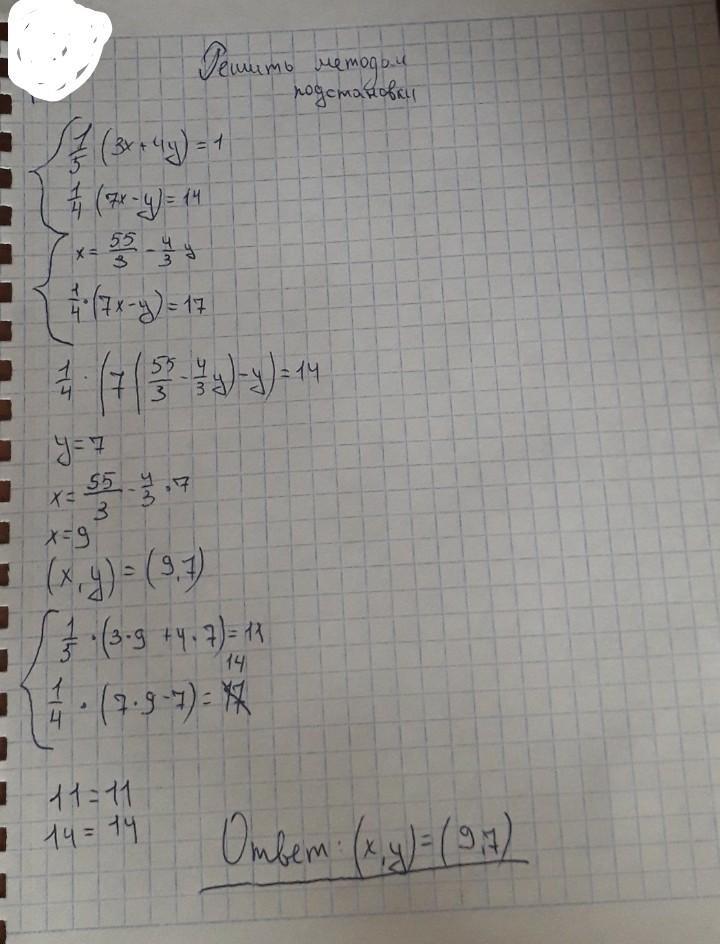 Решить методом
подстановки
1/5 (3x+4y)=1
1/4 (7x-y)=14
x= 55/3 - 4/3 y
1/4·(7x-y)=17
1/4 · (7(55/3 - 4/3 y)-y)=14
y=7
x= 55/3 - 4/3 · 7
x=9
(x,y)=(9,7)
1/5 ·(3·9 +4·7)=11
14
1/4 · (7·9-7)= 17
11=11
14=14
Ответ: (x,y)=(9,7)